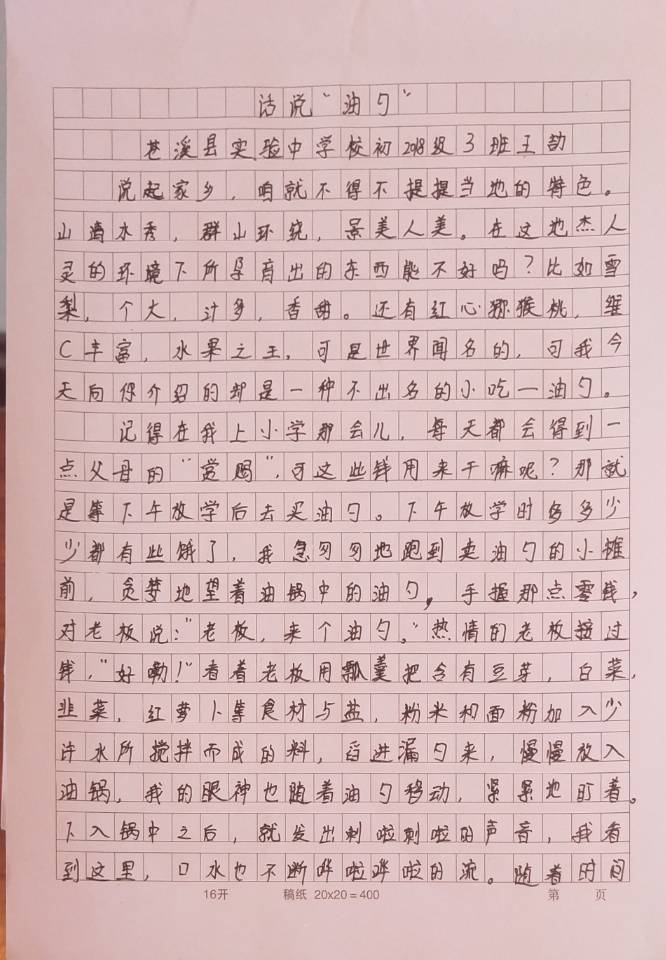 话说“油勺”
苍溪县实验中学校初2018级3班王劼
说起家乡，咱就不得不提提当地的特色。
山清水秀，群山环绕，景美人美。在这地杰人
灵的环境下所孕育出的东西能不好吗？比如雪
梨，个大，汁多，香甜。还有红心猕猴桃，维
C丰富，水果之王，可是世界闻名的，可我今
天向你介绍的却是一种不出名的小吃—油勺。
记得在我上小学那会儿，每天都会得到一
点父母的“赏赐”，可这些钱用来干嘛呢？那就
是等下午放学后去买油勺。下午放学时多多少
少都有些饿了，我急匆匆地跑到卖油勺的小摊
前，贪婪地望着油锅中的油勺，手握那点零钱，
对老板说：“老板，来个油勺。”热情的老板接过
钱，“好嘞！”看着老板用瓢羹把含有豆芽，白菜，
韭菜，红萝卜等食材与盐，粉米和面粉加入少
许水所搅拌而成的料，舀进漏勺来，慢慢放入
油锅，我的眼神也随着油勺移动，紧紧地盯着。
下入锅中之后，就发出刺啦刺啦的声音，我看
到这里，口水也不断哗啦哗啦的流。随着时间
16开 稿纸 20×20=400 第 页